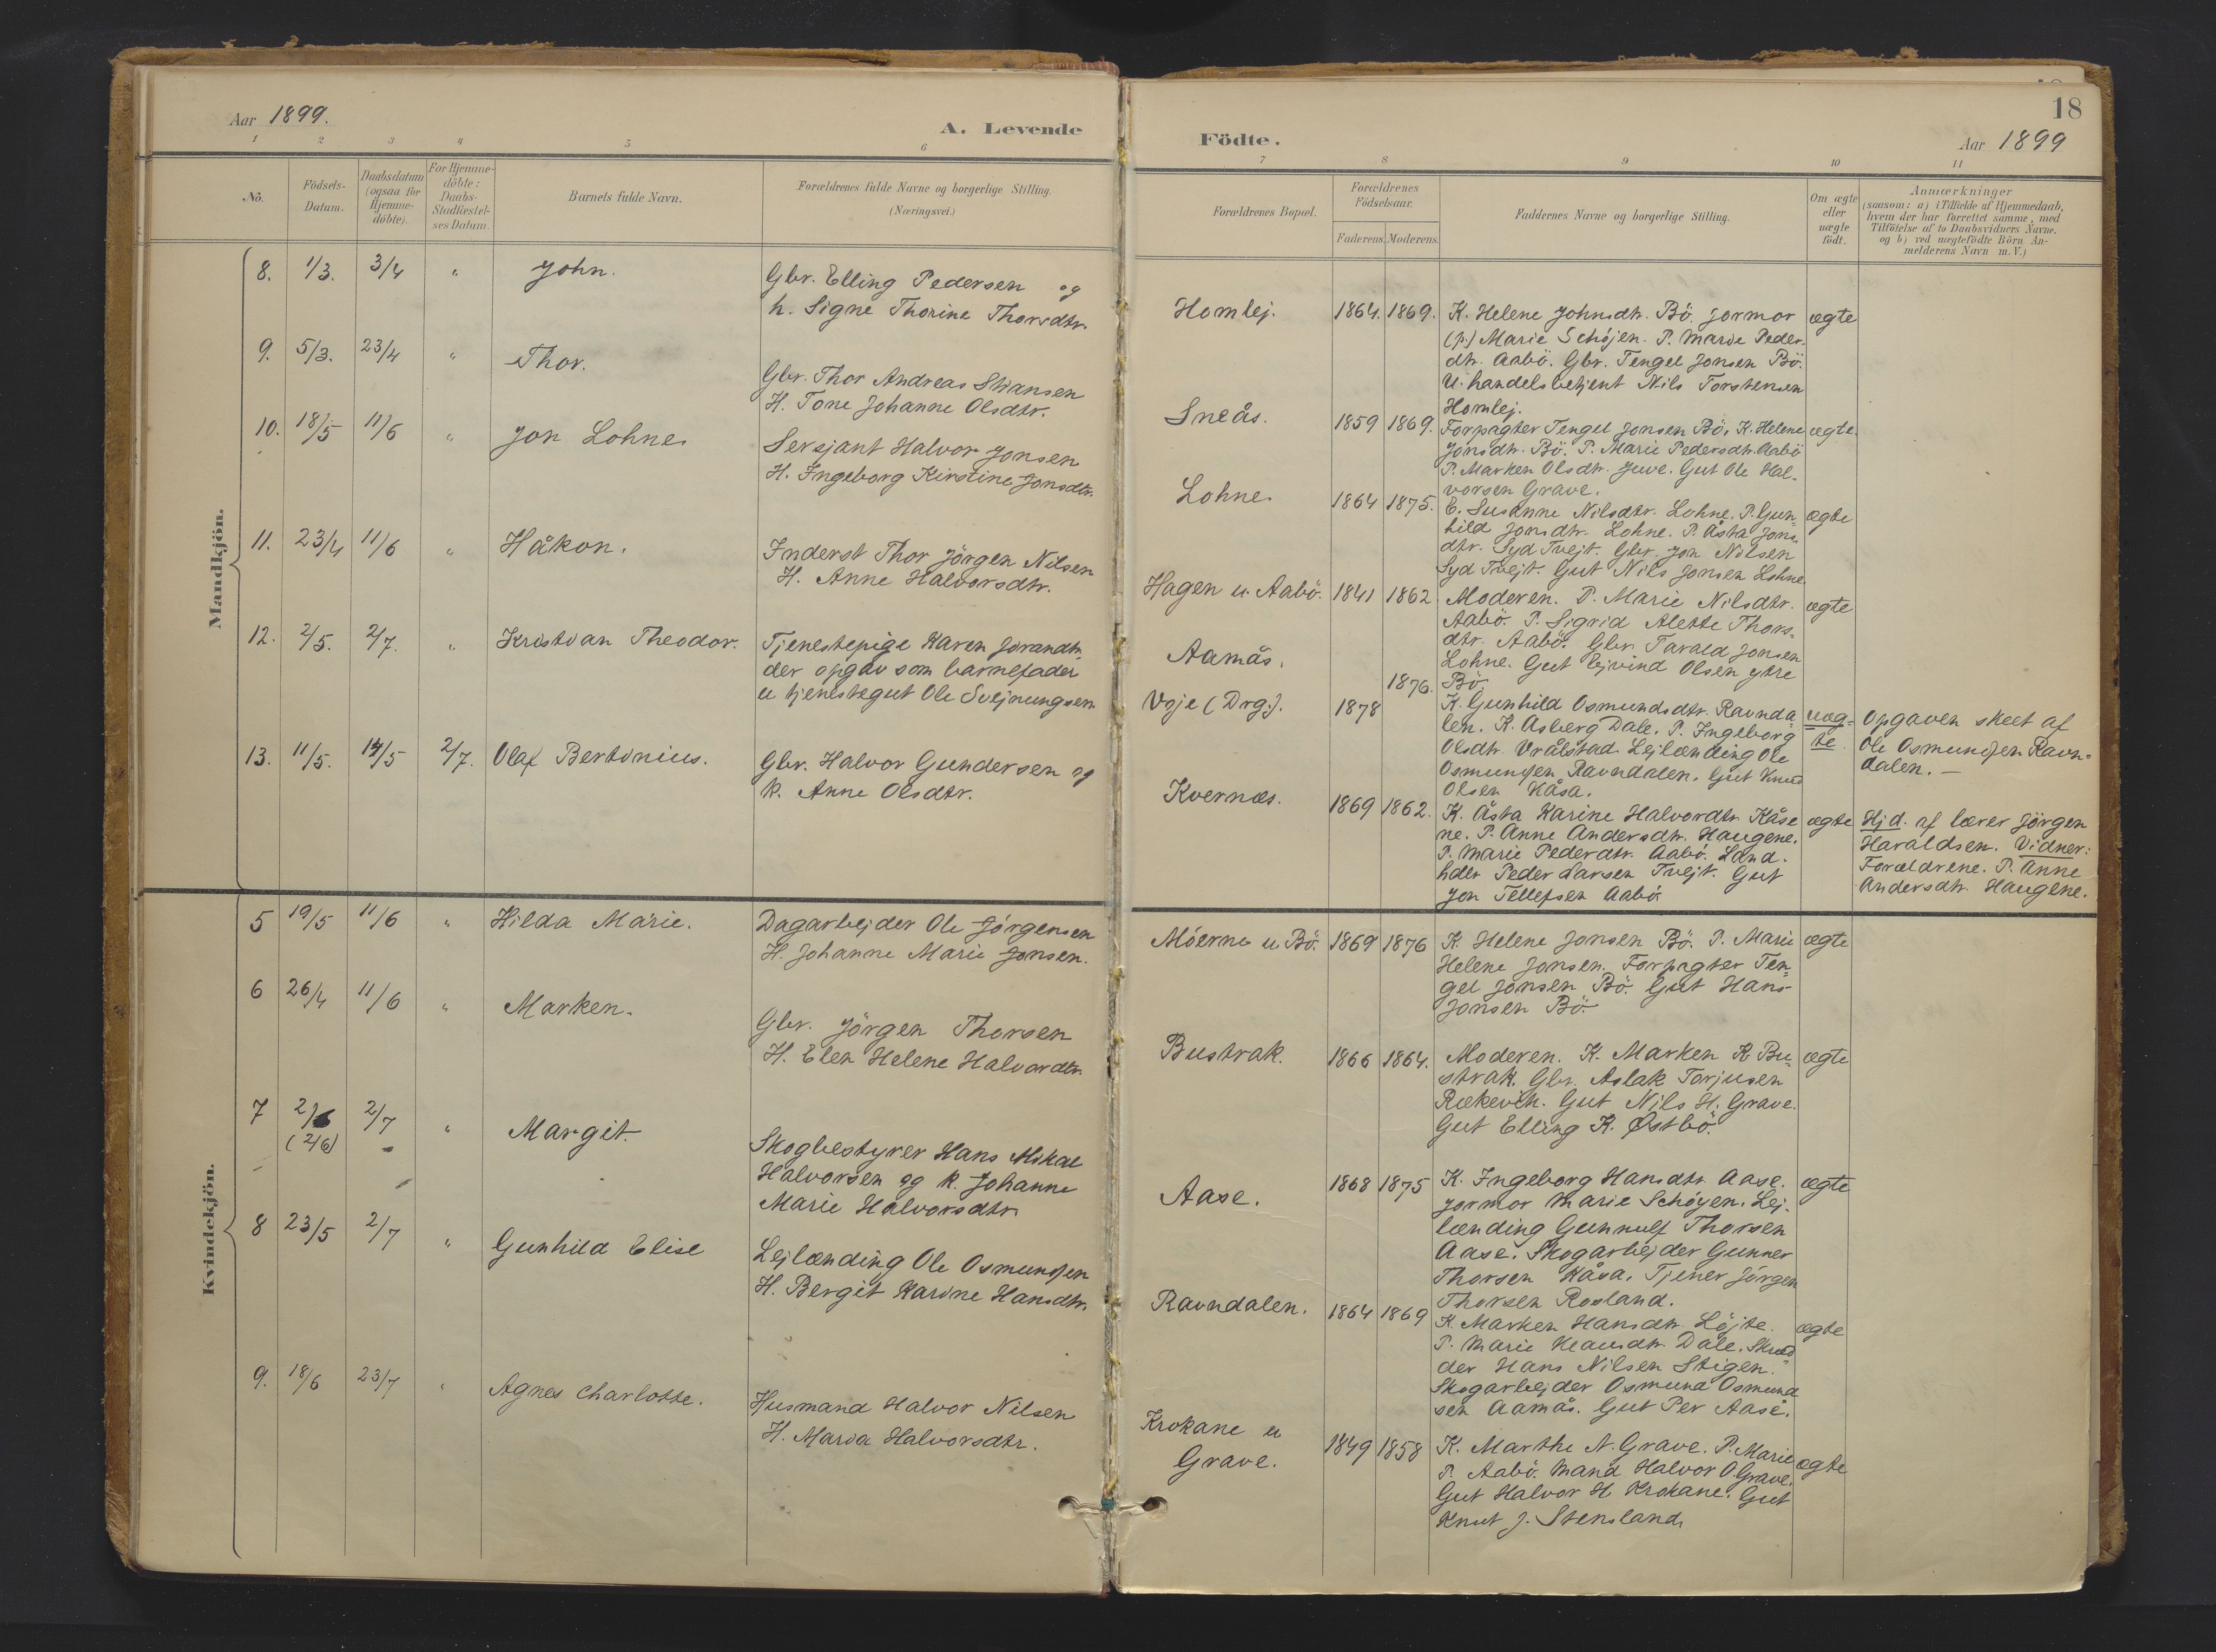 Aar 1899.
A. Levende
1 2 3 4 5 6
No.
Födsels-
Datum.
Daabsdatum
(ogsaa for
Hjemme-
döbte).
For Hjemme-
döbte:
Daabs-
Stadfæstel-
ses Datum.
Barnets fulde Navn.
Forældrenes fulde Navne og borgerlige Stilling.
(Næringsvei.)
Mandkjön.
8. 1/3. 3/4 " John.
Gbr. Elling Pedersen og
h. Signe Thorine Thorsdtr.
9. 5/3. 23/4 " Thor.
Gbr. Thor Andreas
H. Tone Johanne Olsdtr.
10. 18/5 11/6 " Jon Lohne.
Sersjant Halvor Jonsen
H. Ingeborg Kirstine Jonsdtr.
11. 23/4 11/6 " Håkon.
Inderst Thor Jörgen Nilsen
H. Anne Halvorsdtr.
12. 2/5. 2/7. " Kristian Theodor.
Tjenestepige Karen
der opgav som barnefader
u tjenestegut Ole Svejnungsen
13. 11/5. 14/5 2/7. Olaf Bertinius.
Gbr. Halvor Gundersen og
k. Anne Olsdtr.
Kvindekjön.
5 19/5 11/6 " Hilda Marie.
Dagarbejder Ole Jörgensen
H. Johanne Marie Jonsen.
6 26/4 11/6 " Marken.
Gbr. Jörgen Thorsen
H. Elen Helene Halvordtr.
7 2/6 2/7 " Margit.
(2/6)
Skogbestyrer Hans Mikal
Halvorsen og k. Johanne
Marie Halvorsdtr.
8 23/5 2/7 " Gunhild Elise
Lejlænding Ole Osmundsen
H. Bergit Karine Hansdtr.
9. 18/6 23/7 " Agnes Charlotte.
Husmand Halvor Nilsen
H. Maria Halvorsdtr.
18
Födte.
Aar 1899
7 8 9 10 11
Forældrenes Bopæl.
Forældrenes
Födselsaar.
Faderens. Moderens.
Faddernes Navne og borgerlige Stilling.
Om ægte
eller
uægte
födt.
Anmærkninger
(saasom: a) i Tilfælde af Hjemmedaab,
hvem der har forrettet samme, med
Tilföielse af to Daabsvidners Navne,
og b) ved uægtefödte Börn An-
melderens Navn m. V.)
Homlej. 1864. 1869. K. Helene Johnsdtr. Bö. Jormor ægte
(p.) Marie Schöjen. P. Marie Peder-
dtr. Aabö. Gbr. Tengel Jonsen Bö.
U. handelsbetjent Nils Torstensen
Homlej.
Sneås. 1859 1869. Forpagter Tengel Jonsen Bö, K. Helene ægte.
Jonsdtr. Bö. P. Marie Pedersdtr. Aabö
P. Marken Olsdtr. Juve. Gut Ole Hal-
vorsen Grave.
Lohne. 1864 1875. E. Susanne Nilsdtr. Lohne. P. Gun- ægte
hild Jonsdtr. Lohne. P. Åsta Jons-
dtr. Syd Tvejt. Gbr. Jon Nilsen
Syd Tvejt. Gut Nils Jonsen Lohne.
Hagen u. Aabö. 1841 1862 Moderen. P. Marie Nilsdtr. ægte
Aabö. P. Sigrid Alette Thors-
dtr. Aabö. Gbr. Tarald Jonsen
Lohne. Gut Ejvind Olsen ytre
Bö.
Aamås. 1876.
Voje (Drg.). 1878 K. Gunhild Osmundsdtr. Ravnda- uæg-
len. K. Asberg Dale. P. Ingeborg te.
Olsdtr. Vrålstad. Lejlænding Ole
Osmundsen Ravndalen. Gut Knud
Olsen Kåsa.
Opgaven skeet af
Ole Osmundsen Ravn-
dalen. —
Kvernes. 1869 1862. K. Åsta Karine Halvordtr. Kåse ægte
ne. P. Anne Andersdtr. Haugene.
P. Marie Pederdtr. Aabö. Land-
hdlr. Peder Larsen Tvejt. Gut
Jon Tellefsen Aabö
Hjd. af lærer Jörgen
Haraldsen. Vidner:
Forældrene. P. Anne
Andersdtr. Haugene.
Möerne u Bö. 1869 1876 K. Helene Jonsen Bö. P. Marie ægte
Helene Jonsen. Forpagter Ten-
gel Jonsen Bö. Gut Hans
Jonsen Bö.
Bustrak. 1866 1864. Moderen. K. Marken K Bu- ægte
strak. Gbr. Aslak Torjusen
Gut Nils H. Grave.
Gut Elling K. Østbö.
Aase. 1868 1875 K. Ingeborg Hansdtr. Aase. ægte
Jormor Marie Schöyen. Lej-
lænding Gunnulf Thorsen
Aase. Skogarbejder Gunner
Thorsen Kåsa. Tjener Jörgen
Thorsen Rosland.
Ravndalen. 1864 1869 K. Marken Hansdtr. Löjte. ægte
P. Marie Dale. Skræd-
der Hans Nilsen Stigen.
Skogarbejder Osmund Osmund
sen Aamås. Gut Per Aase.
Krokane u
Grave. 1849 1858 K. Marthe N. Grave. P. Marie ægte
P. Aabö. Mand Halvor O. Grave.
Gut Halvor H Krokane. Gut
Knut J. Stensland.